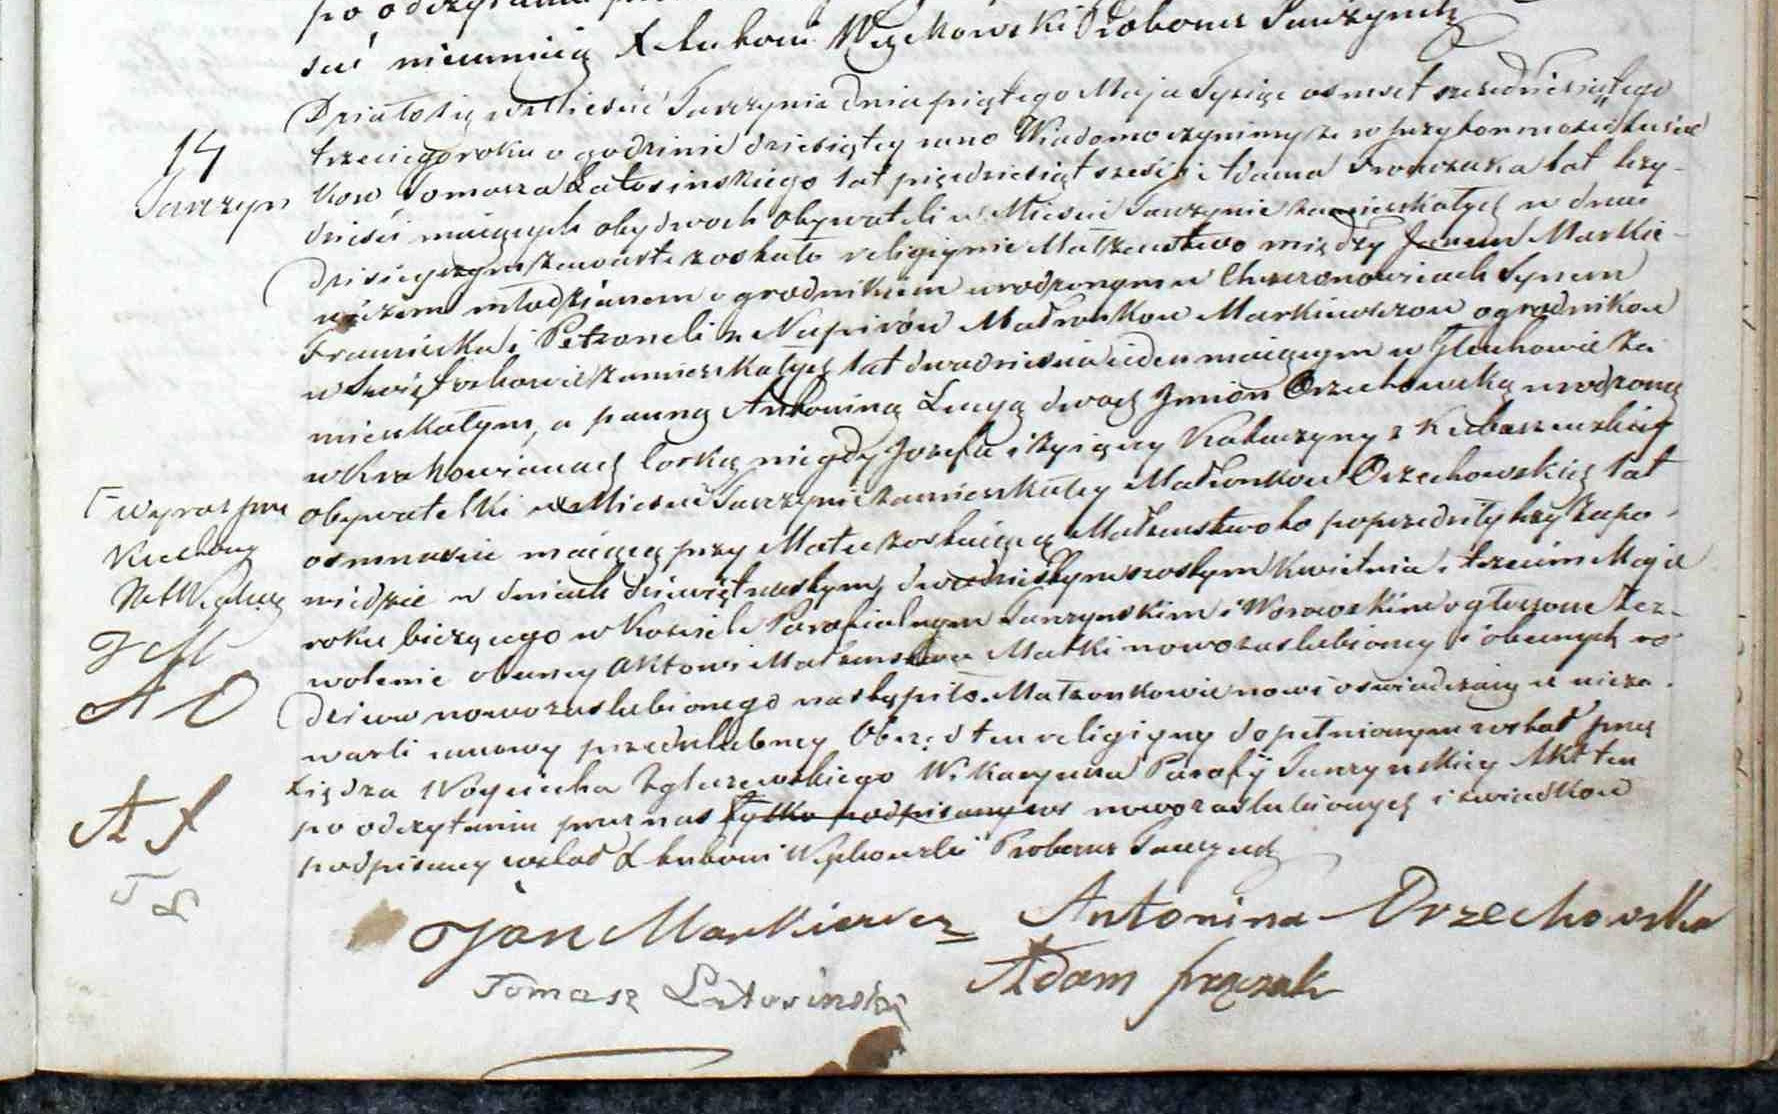 po odczytaniu
sać nieumieią X Łukasz Wężkowski Proboszcz Tarczyński
14
Tarczyn
Działo się w Mieście Tarczynie dnia piątego Maja Tysiąc ośmset sześdziesiątego
trzeciego roku o godzinie dziesiątey rano Wiadomo czynimy że w przytomności świad
kow Tomasza Latosinskiego lat pięćdziesiąt sześć i Adama Fronczaka lat trzy-
dzieści maiących obydwoch obywateli w Mieście Tarczynie zamieszkałych w dniu
dzisieyszym zawarte zostało religiyne Małżeństwo między Janem Markie-
wiczem młodzianem ogrodnikiem urodzonym w Chrzonowicach Synem
Franciszka i Petroneli z Napirów Małżonkow Markiewiczow ogrodnikow
w Świętochowie zamieszkałych lat dwadzieścia ieden maiącym w Głuchowie za
mieszkałym, a panną Antoniną Łucyą dwoyg Jmion Orzechowską urodzoną
w Krakowianach Corką niegdy Jozefa i żyiącey Katarzyny z
obywatelki w Mieście Tarczynie zamieszkałey Małżonkow Orzechowskich lat
ośmnaście maiącą przy Matce zostaiącą Małżeństwo to poprzedziły trzy zapo-
wiedzie w dniach dziewiętnastym, dwudziestym szostym Kwietnia i trzecim Maja
roku bieżącego w Kościele Parafialnym Tarczynskim i Worowskim ogłoszone Zez-
wolenie obecney Aktowi Małżenstwa Matki nowozaślubioney i obecnych ro-
dziców nowozaslubionego nastąpiło. Małżonkowie nowi oswiadczaią iż nieza-
warli umowy przedslubney Obrzęd ten religiyny dopełnionym został przez
Xiędza Woyciecha Wikaryusza Parafii Tarczynskiey Akt ten
po odczytaniu przez nas tylko podpisany ws nowozaslubionych i swiadkow
podpisany został X Łukasz Wężkowski Proboszcz Tarczynsk
wyraz prze
X Ł Wężkows
J M
A O
A f
T L
Jan Markiewicz Antonina Orzechowska
Tomasz Latosinski Adam frączak